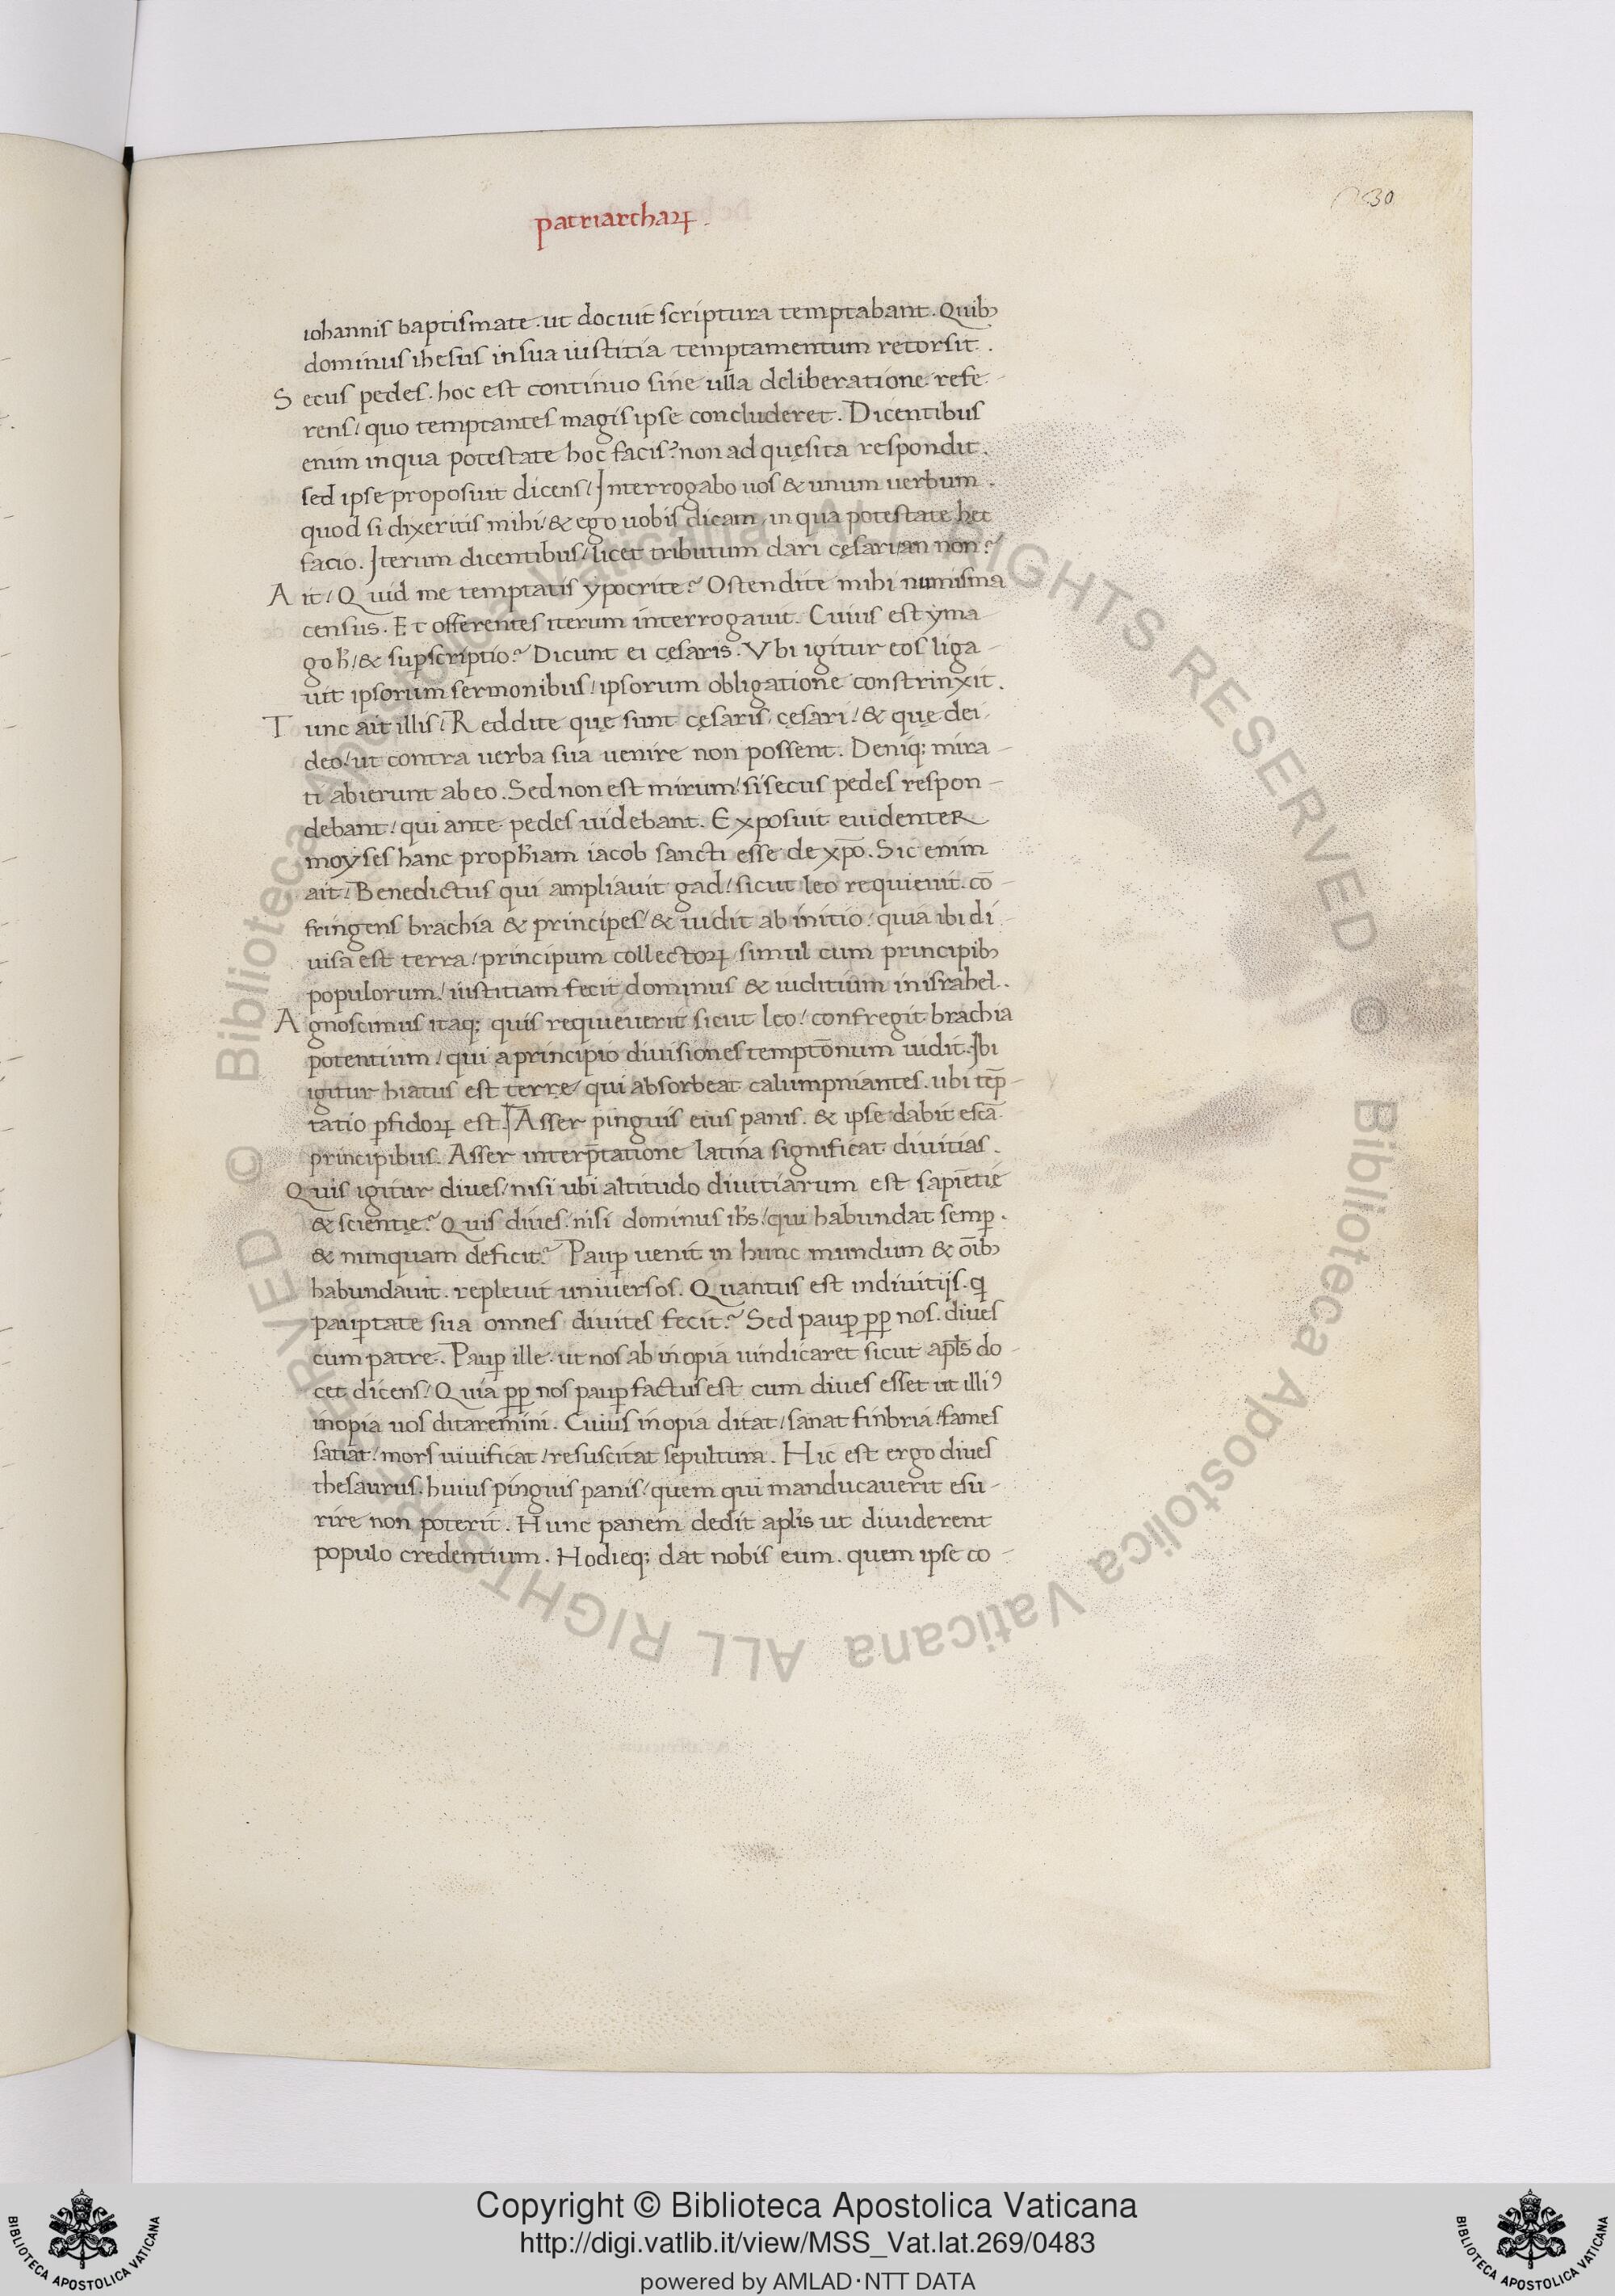 230
patriarchaꝝ.
iohannis baptismate. ut docuit scriptura temptabant. Quibꝫ
dominus ihesus in sua iustitia temptamentum retorsit.
Secus pedes. hoc est continuo sine ulla deliberatione refe-
rens/ quo temptantes magis ipse concluderet. Dicentibus
enim in qua potestate hoc facis? non ad quęsita respondit.
sed ipse proposuit dicens/ Interrogabo uos & unum uerbum.
quod si dixeritis mihi/ & ego uobis dicam, in qua potestate hec
facio. Iterum dicentibus/ licet tributum dari cęsari/ an non?
Ait/ Quid me temptatis ypocrite? Ostendite mihi numisma
census. Et offerentes iterum interrogauit. Cuius est yma-
go h̄/ & suꝑscriptio? Dicunt ei cęsaris. Vbi igitur eos liga-
uit ipsorum sermonibus/ ipsorum obligatione constrinxit.
Tunc ait illis/ Reddite quę sunt cęsaris, cęsari/ & quę dei,
deo/ ut contra uerba sua uenire non possent. Deniqꝫ mira-
ti abierunt ab eo. Sed non est mirum/ si secus pedes respon-
debant/ qui ante pedes uidebant. Exposuit euidenter
moyses hanc proph̄iam iacob sancti esse de xp̄o. Sic enim
ait/ Benedictus qui ampliauit gad/ sicut leo requieuit. cō-
fringens brachia & principes/ & uidit ab initio/ quia ibi di-
uisa est terra/ principum collectoꝝ, simul cum principibꝫ
populorum/ iustitiam fecit dominus & iuditium in israhel.
Agnoscimus itaqꝫ quis requieuerit sicut leo/ confregit brachia
potentium/ qui a principio diuisiones temptōnum uidit. Ibi
igitur hiatus est terrę/ qui absorbeat calumpniantes. ubi tēp-
tatio ꝑfidoꝝ est. Asser pinguis eius panis. & ipse dabit escā
principibus. Asser interp̄tatione latina significat diuitias.
Quis igitur diues/ nisi ubi altitudo diuitiarum est sapiētię
& scientię? Quis diues/ nisi dominus ih̄s/ qui habundat semꝑ.
& nunquam deficit? Pauꝑ uenit in hunc mundum & oībꝫ
habundauit. repleuit uniuersos. Quantus est in diuitijs. q̇
pauꝑtate sua omnes diuites fecit? Sed pauꝑ ꝓꝑ nos. diues
cum patre. Pauꝑ ille. ut nos ab inopia uindicaret sicut apl̄s do-
cet dicens/ Quia ꝓꝑ nos pauꝑ factus est cum diues esset ut illiꝰ
inopia uos ditaremini. Cuius inopia ditat/ sanat finbria/ fames
satiat/ mors uiuificat/ resuscitat sepultura. Hic est ergo diues
thesaurus. huius pinguis panis/ quem qui manducauerit esu-
rire non poterit. Hunc panem dedit apl̄is ut diuiderent
populo credentium. Hodieqꝫ dat nobis eum. quem ipse co-
© Biblioteca Apostolica Vaticana ALL RIGHTS RESERVED
© Biblioteca Apostolica Vaticana ALL RIGHTS RESERVED
BIBLIOTECA APOSTOLICA VATICANA
Copyright © Biblioteca Apostolica Vaticana
http://digi.vatlib.it/view/MSS_Vat.lat.269/0483
powered by AMLAD·NTT DATA
BIBLIOTECA APOSTOLICA VATICANA